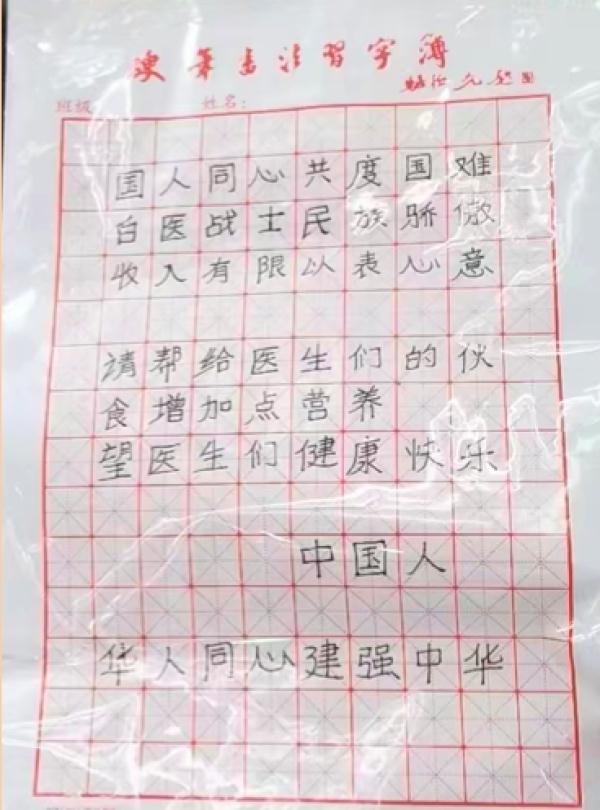 硬笔书法习字簿
班级 姓名:
国人同心共度国难
白医战士民族骄傲
收入有限以表心意
请帮给医生们的伙
食增加点营养
望医生们健康快乐
中国人
华人同心建强中华